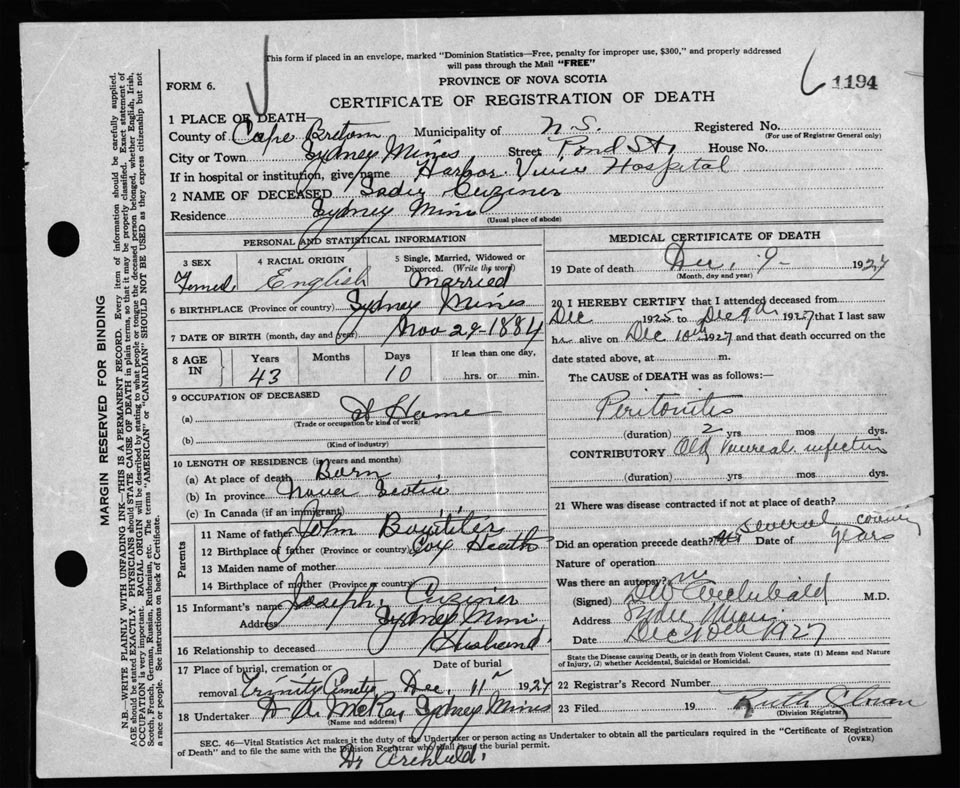 This form if placed in an envelope, marked "Dominion Statistics—Free, penalty for improper use, $300," and properly addressed
will pass through the Mail "FREE"
FORM 6.
PROVINCE OF NOVA SCOTIA
1194
CERTIFICATE OF REGISTRATION OF DEATH
1 PLACE OF DEATH
County of Cape Breton Municipality of N.S. Registered No.
(For use of Registrar General only)
City or Town Sydney Mines Street Pond St, House No.
If in hospital or institution, give name Harbor View Hospital
2 NAME OF DECEASED Sadie Cuziner
Residence Sydney Mines
(Usual place of abode)
PERSONAL AND STATISTICAL INFORMATION
3 SEX 4 RACIAL ORIGIN 5 Single, Married, Widowed or Divorced. (Write the word)
Female English Married
6 BIRTHPLACE (Province or country) Sydney Mines
7 DATE OF BIRTH (month, day and year) Nov 29-1884
8 AGE IN Years Months Days If less than one day,
43 10 hrs. or min.
9 OCCUPATION OF DECEASED
(a) At Home
(Trade or occupation or kind of work)
(b)
(Kind of industry)
10 LENGTH OF RESIDENCE (in years and months)
(a) At place of death Born
(b) In province Nova Scotia
(c) In Canada (if an immigrant)
Parents
11 Name of father John
12 Birthplace of father (Province or country) Cox Heath
13 Maiden name of mother
14 Birthplace of mother (Province or country)
15 Informant's name Joseph Cuziner
Address Sydney Mines
16 Relationship to deceased Husband
17 Place of burial, cremation or Date of burial
removal Trinity Cemetery Dec. 11 1927
18 Undertaker A. McKay Sydney Mines
(Name and address)
MEDICAL CERTIFICATE OF DEATH
19 Date of death Dec. 9 1927
(Month, day and year)
20 I HEREBY CERTIFY that I attended deceased from
Dec 1925 to Dec 9th 1927 that I last saw
h alive on Dec 10th 1927 and that death occurred on the
date stated above, at m.
The CAUSE of DEATH was as follows:
Peritonitis
(duration) 2 yrs. mos dys.
CONTRIBUTORY Old infection
(duration) yrs mos dys.
21 Where was disease contracted if not at place of death?
several
Did an operation precede death? Date of years
Nature of operation
Was there an autopsy? no
(Signed) Archibald M.D.
Address Sydney Mines
Date Dec 10th 1927
State the Disease causing Death, or in death from Violent Causes, state (1) Means and Nature
of Injury, (2) whether Accidental, Suicidal or Homicidal.
22 Registrar's Record Number
23 Filed 19 Ruth
(Division Registrar)
SEC. 46—Vital Statistics Act makes it the duty of the Undertaker or person acting as Undertaker to obtain all the particulars required in the "Certificate of Registration
of Death" and to file the same with the Division Registrar who shall issue the burial permit.
(OVER)
Dr Archibald.
MARGIN RESERVED FOR BINDING
N.B.—WRITE PLAINLY WITH UNFADING INK—THIS IS A PERMANENT RECORD. Every item of information should be carefully supplied.
AGE should be stated EXACTLY. PHYSICIANS should STATE CAUSE OF DEATH in plain terms, so that it may be properly classified. Exact statement of
OCCUPATION is very important. RACIAL ORIGIN will be described by stating to what people or tongue the deceased person belonged, whether English, Irish,
Scotch, French, German, Russian, Ruthenian, etc. The terms "AMERICAN" or "CANADIAN" SHOULD NOT BE USED as they express citizenship but not
a race or people. See instructions on back of Certificate.